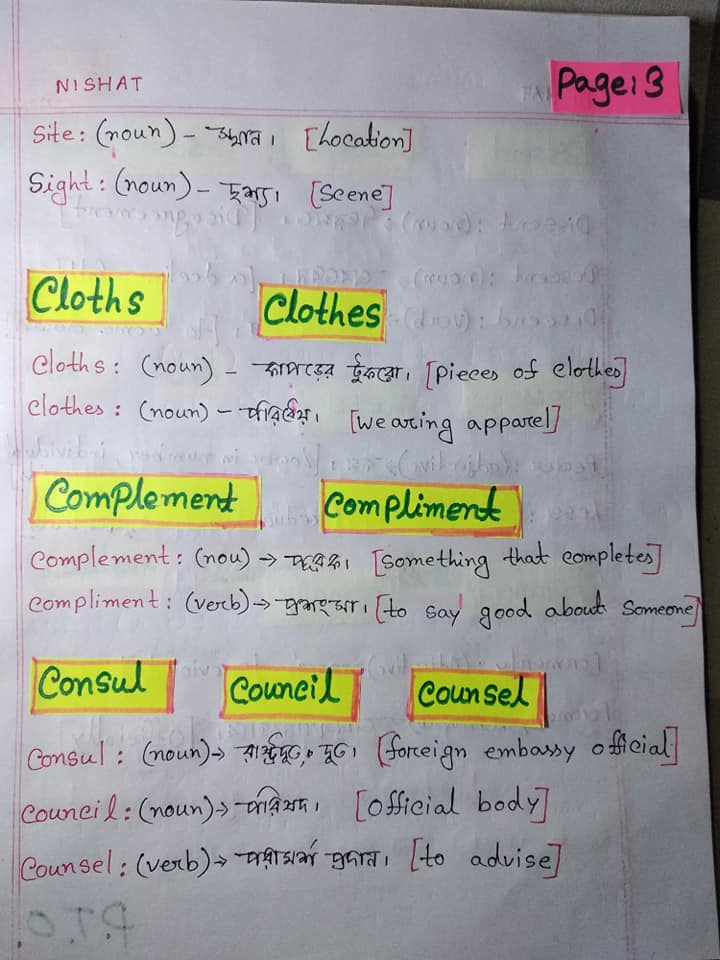 NISHAT
Page: 3
Site: (noun) - স্থান। [Location]
Sight: (noun) - দৃশ্য। [Scene]
Cloths Clothes
Cloths: (noun) - কাপড়ের টুকরো। [pieces of clothes]
Clothes: (noun) - পরিধেয়। [wearing apparel]
Complement Compliment
Complement: (nou) → পূরক। [something that completes]
Compliment: (verb) → প্রশংসা। [to say good about someone]
Consul Council Counsel
Consul: (noun) → রাষ্ট্রদূত, দূত। [foreign embassy official]
Council: (noun) → পরিষদ। [official body]
Counsel: (verb) → পরামর্শ প্রদান। [to advise]
P.T.O.